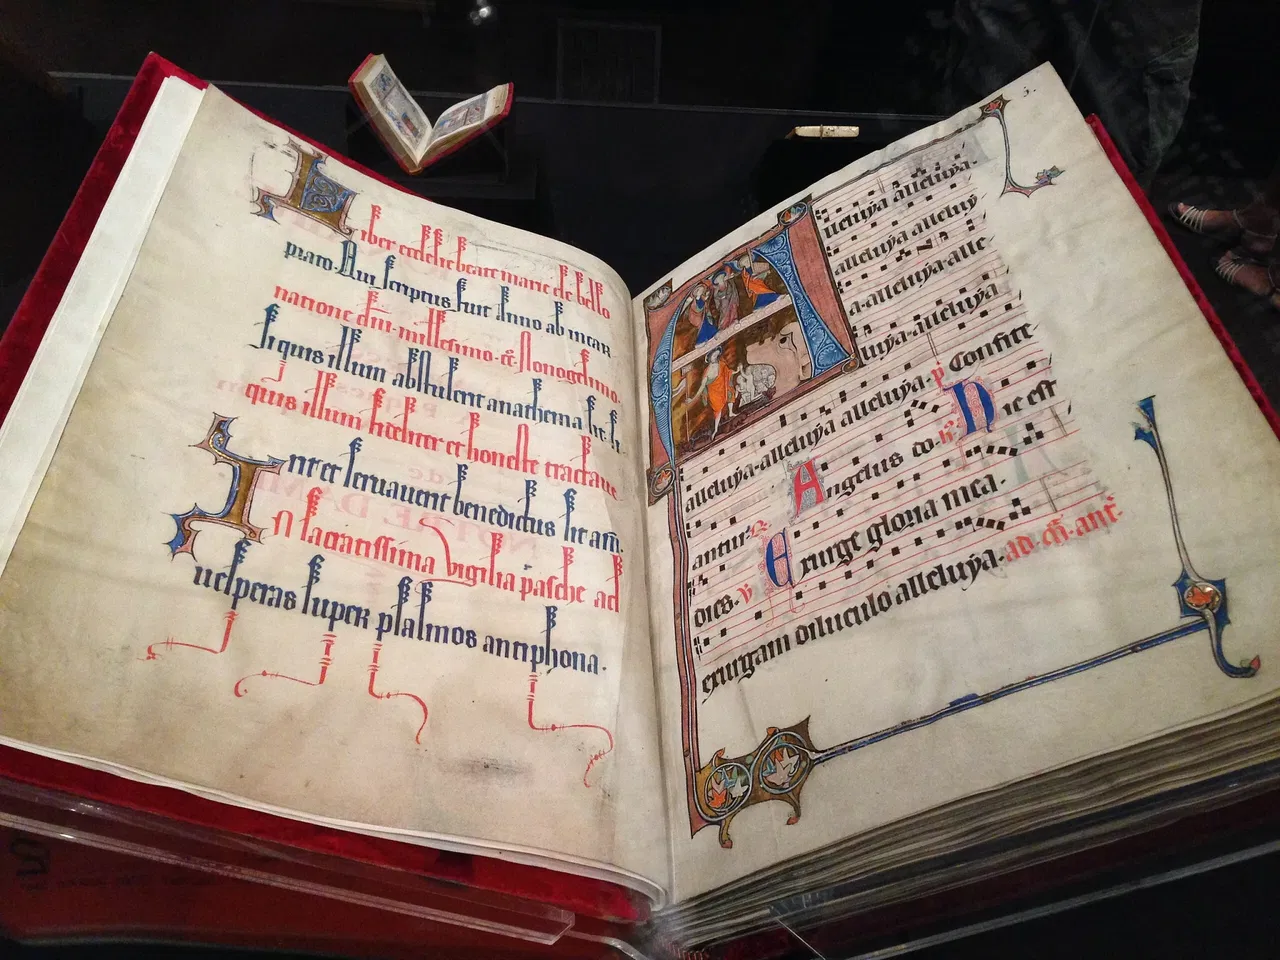 Liber ecclesie beate marie de bello
prato. Qui scriptus fuit Anno ab incar
natione dni. millesimo. cc. Nonogesimo.
Si quis illum abstulerit anathema sit. Si
quis illum fideliter et honeste tractaue
rit et seruauerit benedictus sit. am.
In sacratissima vigilia pasche ad
uesperas super psalmos antiphona.
Alleluya alleluya.
alleluya alleluy
a. alleluya. alle
luya. alleluya
alleluya. alleluya alleluya. p Confite
antur. R Angelus do. Hec est
dies. V Exurge gloria mea.
exurgam diluculo alleluya. ad m. ant.